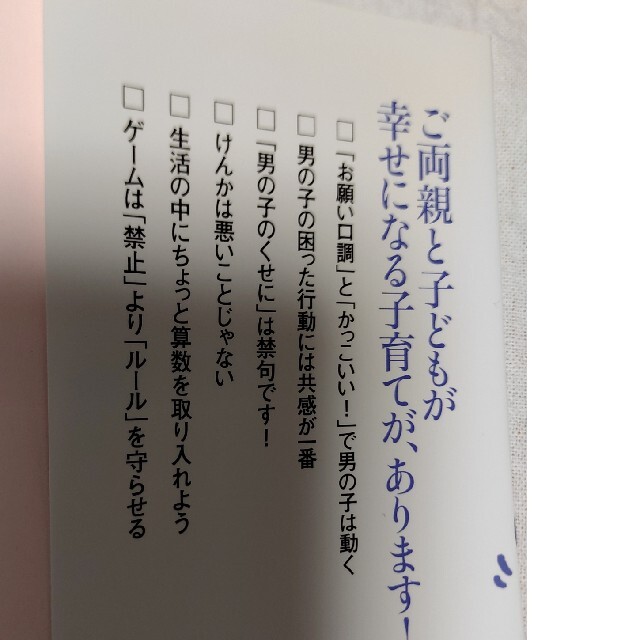 ご両親と子どもが
幸せになる子育てが、あります！
□「お願い口調」と「かっこいい！」で男の子は動く
□ 男の子の困った行動には共感が一番
□「男の子のくせに」は禁句です！
□ けんかは悪いことじゃない
□ 生活の中にちょっと算数を取り入れよう
□ ゲームは「禁止」より「ルール」を守らせる